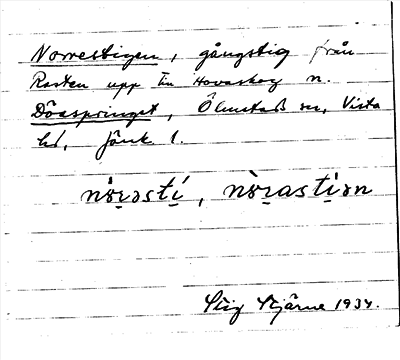 Norrestigen, gångstig från
Rasten upp till Hovaskog n.
Döaspringet, Ölmstad sn, Vista
hd, Jönk l.
nòrəstí, nòrastiən
Stig Stjärne 1934.